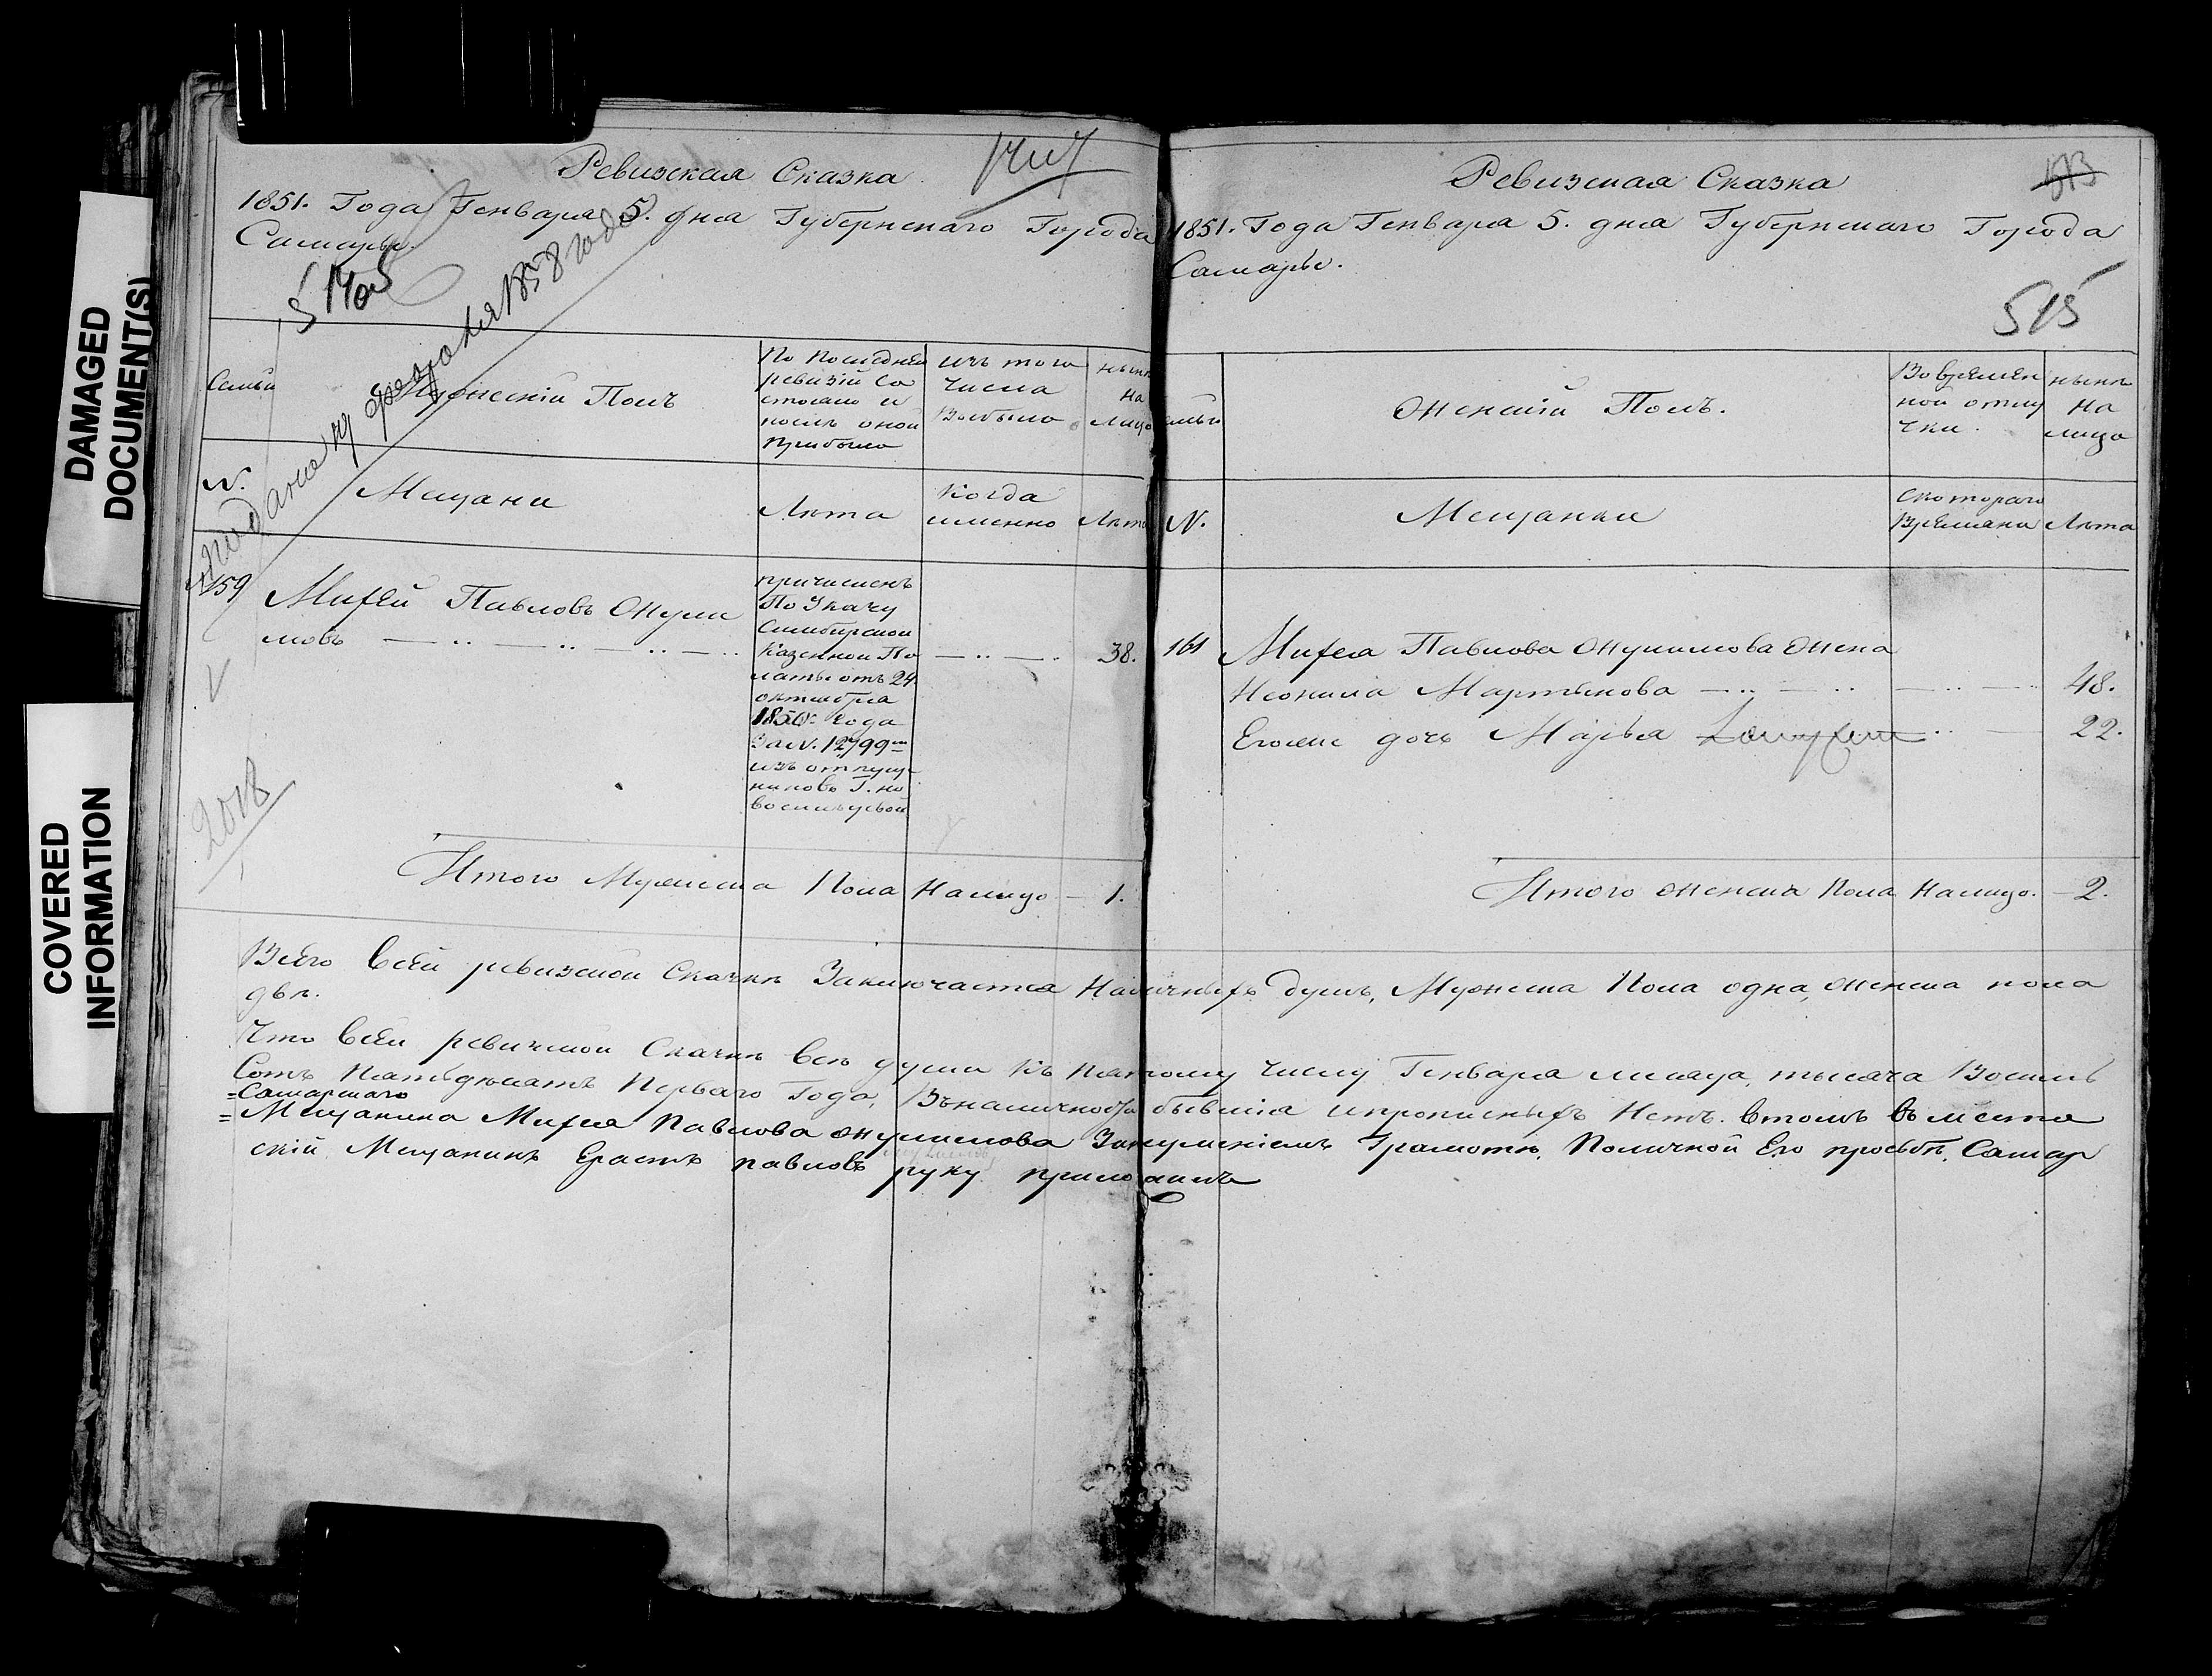 DAMAGED
DOCUMENT(S)
COVERED
INFORMATION
Ревизская Сказка
1851. Года Генваря 5. дня Губернскаго Города
Самары.
Семьи
Мужескій Полъ
По Последней
ревизіи Со
стояло и
после оной
прибыло
изъ того
числа
Выбыло
ныне
На
лицо
N.
Мещани
Лета
Когда
именно
Лета
159
Михей Павловъ Жули
мовъ
причисленъ
По Указу
Симбирской
Казенной Па
латы отъ 24
октября
1850 года
За N. 12799
изъ отпущен
никовъ Г. но
восильцевой
38.
2018
Итого Мужеска Пола Налицо 1.
Ревизская Сказка
1851. Года Генваря 5. дня Губернскаго Города
Самары.
515
семьи
Женскій Полъ.
Во времян
ной отлу
чки.
ныне
На
лицо
N.
Мещанки
Скотораго
Времяни
Лета
161
Михея Павлова Жулимова Жена
Неонила Мартынова 48.
Егоже дочь Марья 22.
Итого женска Пола Налицо. 2.
Всего Всей ревизской Сказке Заключается Наличныхъ душъ, Мужеска Пола одна, Женска пола
две.
Что Всей ревизской Сказке Все души Къ Пятому Числу Генваря месяца, тысяча Восемь
Сотъ Пятьдесятъ Перваго Года, Въналичности бывшія ипрописныхъ Нетъ. Втомъ Въместа
Самарскаго
Мещанина Михея Павлова Жулимова Занеуменіемъ Грамоте, Поличной Его просьбе, Самар
скій Мещанинъ Ерастъ павловъ руку приложилъ